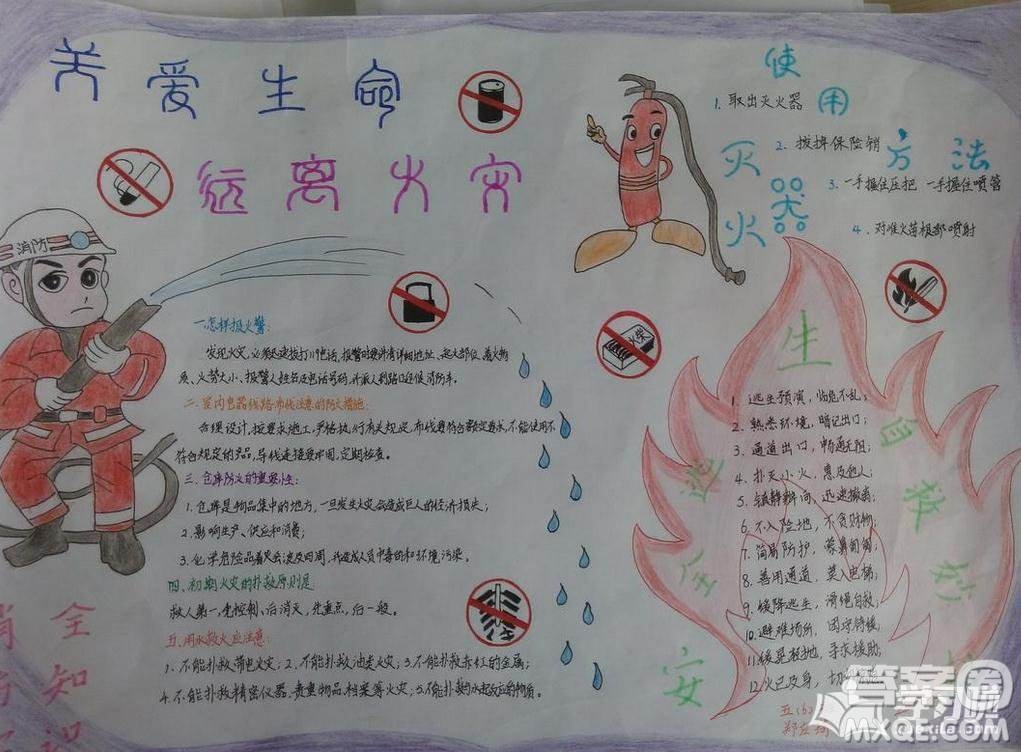 关爱生命
远离火灾
消防
使用
灭火器
方法
1. 取出灭火器
2. 拔掉保险销
3. 一手握住压把 一手握住喷管
4. 对准火苗根部喷射
火柴
一.怎样报火警:
发现火灾,必须迅速拨打119电话,报警时要讲清详细地址、起火部位、着火物
质、火势大小、报警人姓名及电话号码,并派人到路口迎候消防车。
二.室内电器线路布线注意的防火措施:
合理设计,按要求施工,严格执行有关规定,布线要符合额定要求,不能使用不
符合规定的产品,导线连接要牢固,定期检查。
三.仓库防火的重要性:
1.仓库是物品集中的地方,一旦发生火灾会造成巨大的经济损失;
2.影响生产、供应和消费;
3.化学危险品着火会波及四周,并造成人员中毒伤和环境污染。
四.初期火灾的扑救原则是
救人第一,先控制,后消灭,先重点,后一般。
五.用水救火应注意:
1.不能扑救带电火灾;2.不能扑救油类火灾;3.不能扑救赤红的金属;
4.不能扑救精密仪器,贵重物品,档案等火灾;5.不能扑救与水起反应的物质。
安全逃生自救
1. 逃生预演,临危不乱;
2. 熟悉环境,暗记出口;
3. 通道出口,畅通无阻;
4. 扑灭小火,惠及他人;
5. 镇静辨向,迅速撤离;
6. 不入险地,不贪财物;
7. 简易防护,蒙鼻匍匐;
8. 善用通道,莫入电梯;
9. 缓降逃生,滑绳自救;
10. 避难场所,固守待援;
11. 缓晃轻抛,寻求援助;
12. 火已及身,切
全知识
消防
答案圈
MXQE.COM